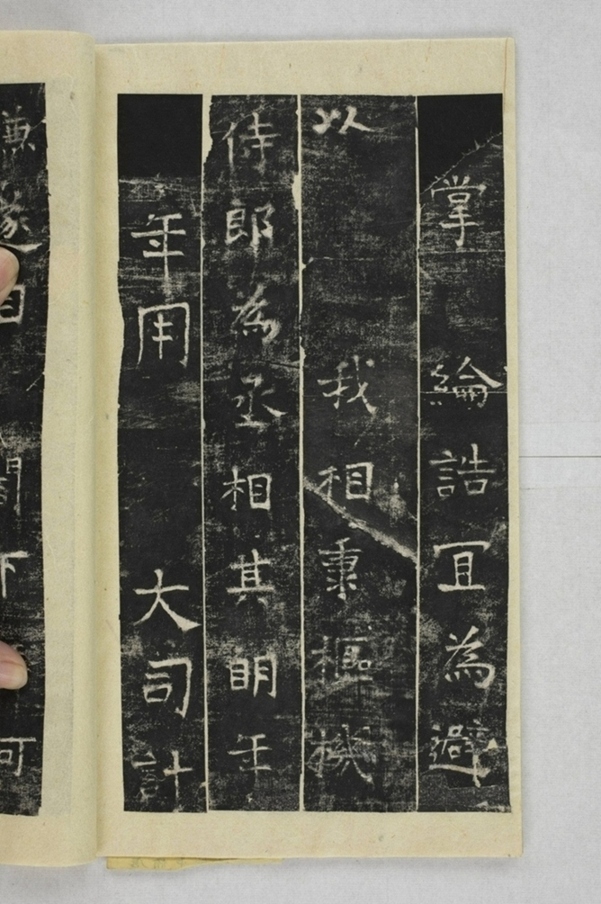 掌綸誥冝為避
以我相秉樞機
侍郎為丞相其明年
年用大司計